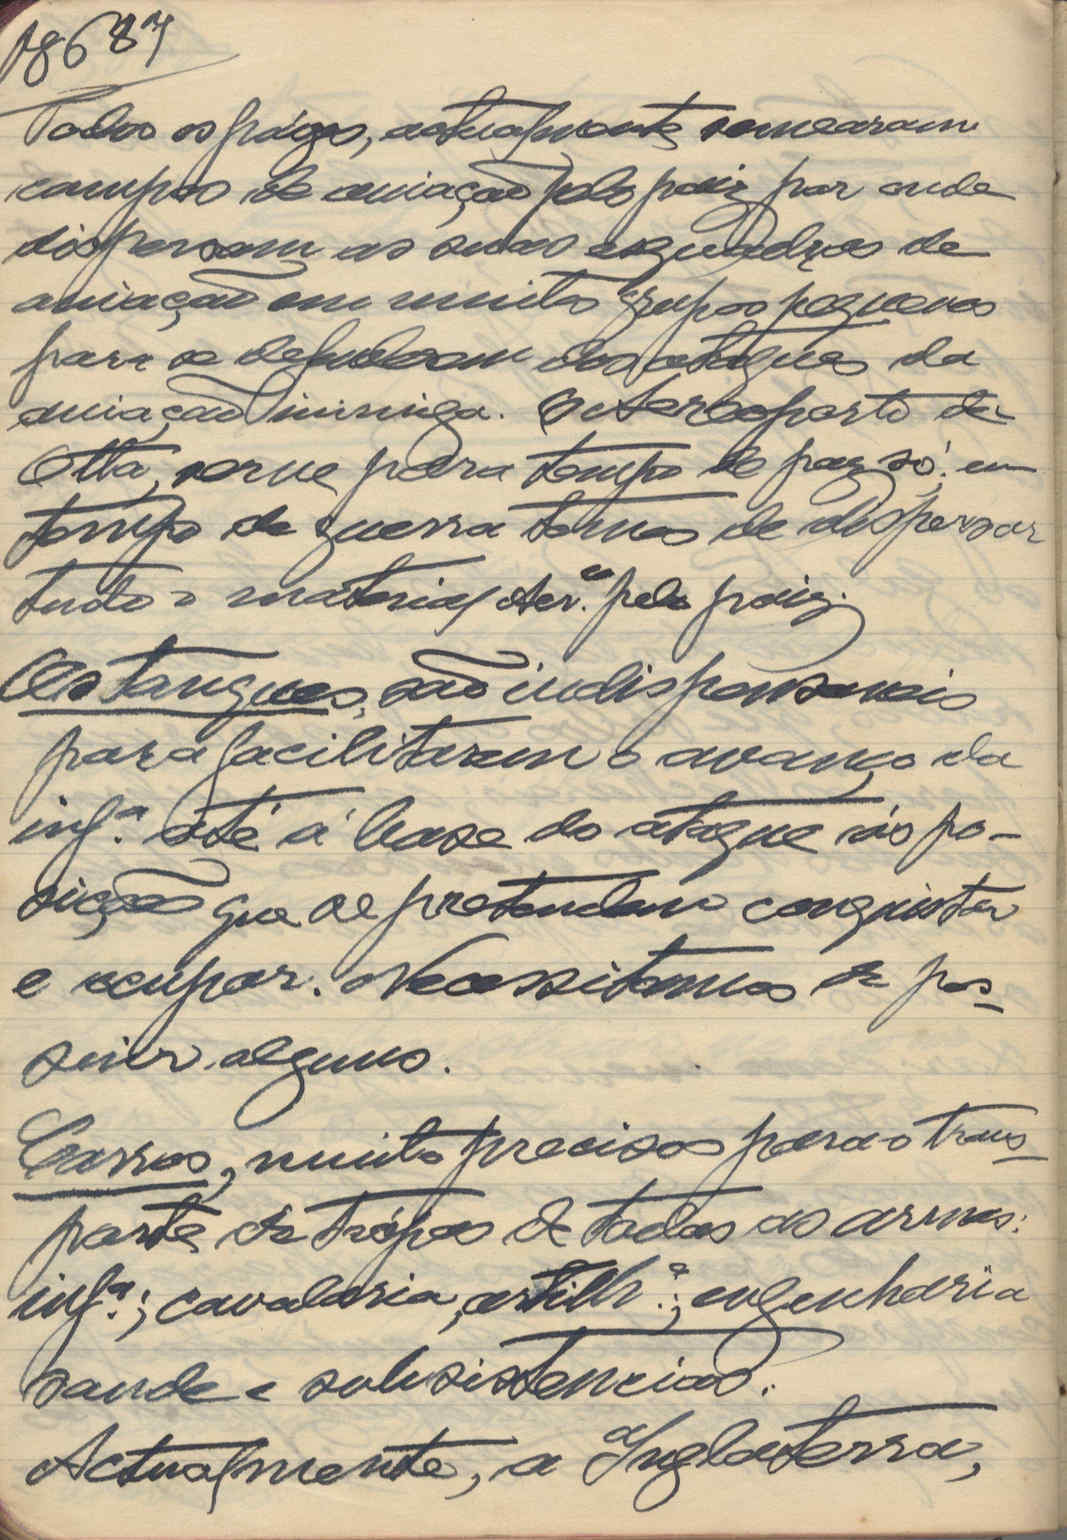 Todos os páizes, actualmente semearam
campos de aviação pelo paiz por onde
dispersam as suas esquadras de
aviação em muitos grupos pequenos
para se defenderem dos ataques da
aviação inimiga. O Aeroporto da
Otta, serve para tempo de paz só; em
tempo de guerra temos de dispersar
tudo o material Aer.º pelo paiz.
Os tanques, são indispensaveis
para facilitarem o avanço da
inf.ª até á base do ataque ás po-
sições que se pretendem conquistar
e ocupar. Necessitamos de pos-
suir alguns.
Carros, muito precisos para o trans-
porte de trópas de todas as armas:
inf.ª; cavalaria, artilh.ª; engenharia
saude e subsistencias.
Actualmente, a Inglaterra,